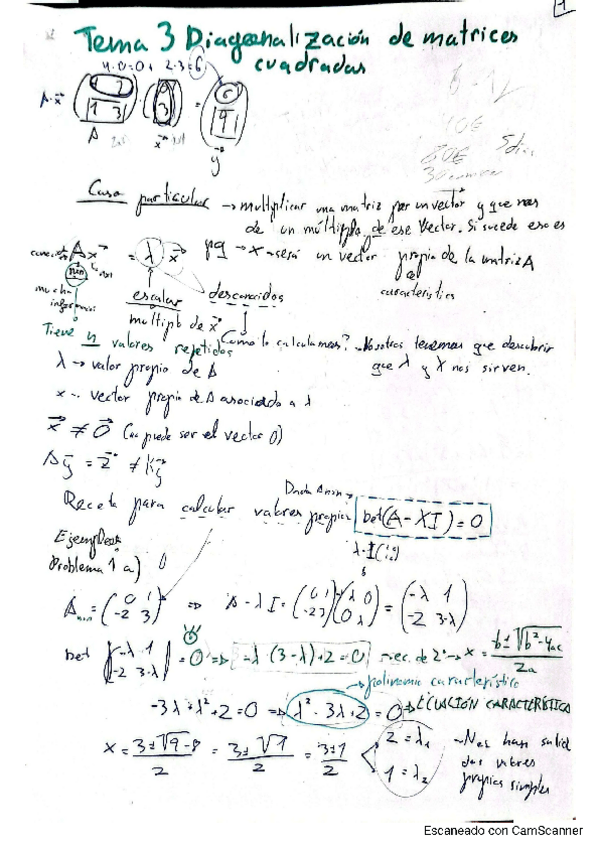 1
Tema 3 Diagonalización de matrices
cuadradas
4·0=0 + 2·3=6
A·x⃗
1 3
6
9
A
x⃗
y⃗
Caso particular → multiplicar una matriz por un vector y que nos
de un múltiplo de ese vector. Si sucede eso es
A x⃗ = λ x⃗ pq → x → será un vector propio de la matriz A
nxn
mucha
característico
escalar
desconocidos
multiplo de x⃗
Tiene n valores repetidos
Como lo calculamos? → Nosotros tenemos que descubrir
que λ y X nos sirven.
λ → valor propio de A
x → vector propio de A asociado a λ
x⃗ ≠ 0⃗ (no puede ser el vector 0)
A y⃗ = z⃗ ≠ k y⃗
Receta para calcular valores propios
Dada Anxn →
Det(A - λI) = 0
λ·I
Ejemplo:
Problema 1 a)
Anxn = (0 1 / -2 3) ⇒ A - λI = (0 1 / -2 3) (λ 0 / 0 λ) = (-λ 1 / -2 3-λ)
Det |-λ 1 / -2 3-λ| = 0 ⇒ -λ·(3-λ)+2=0 → ec. de 2º → x = b±√b²-4ac / 2a
→ polinomio característico
-3λ+λ²+2=0 ⇒ λ²-3λ+2=0 → ECUACIÓN CARACTERÍSTICA
x = 3±√9-8 / 2 = 3±√1 / 2 = 3±1 / 2
2=λ₁
1=λ₂
→ Nos han salido
dos valores
propios simples
Escaneado con CamScanner